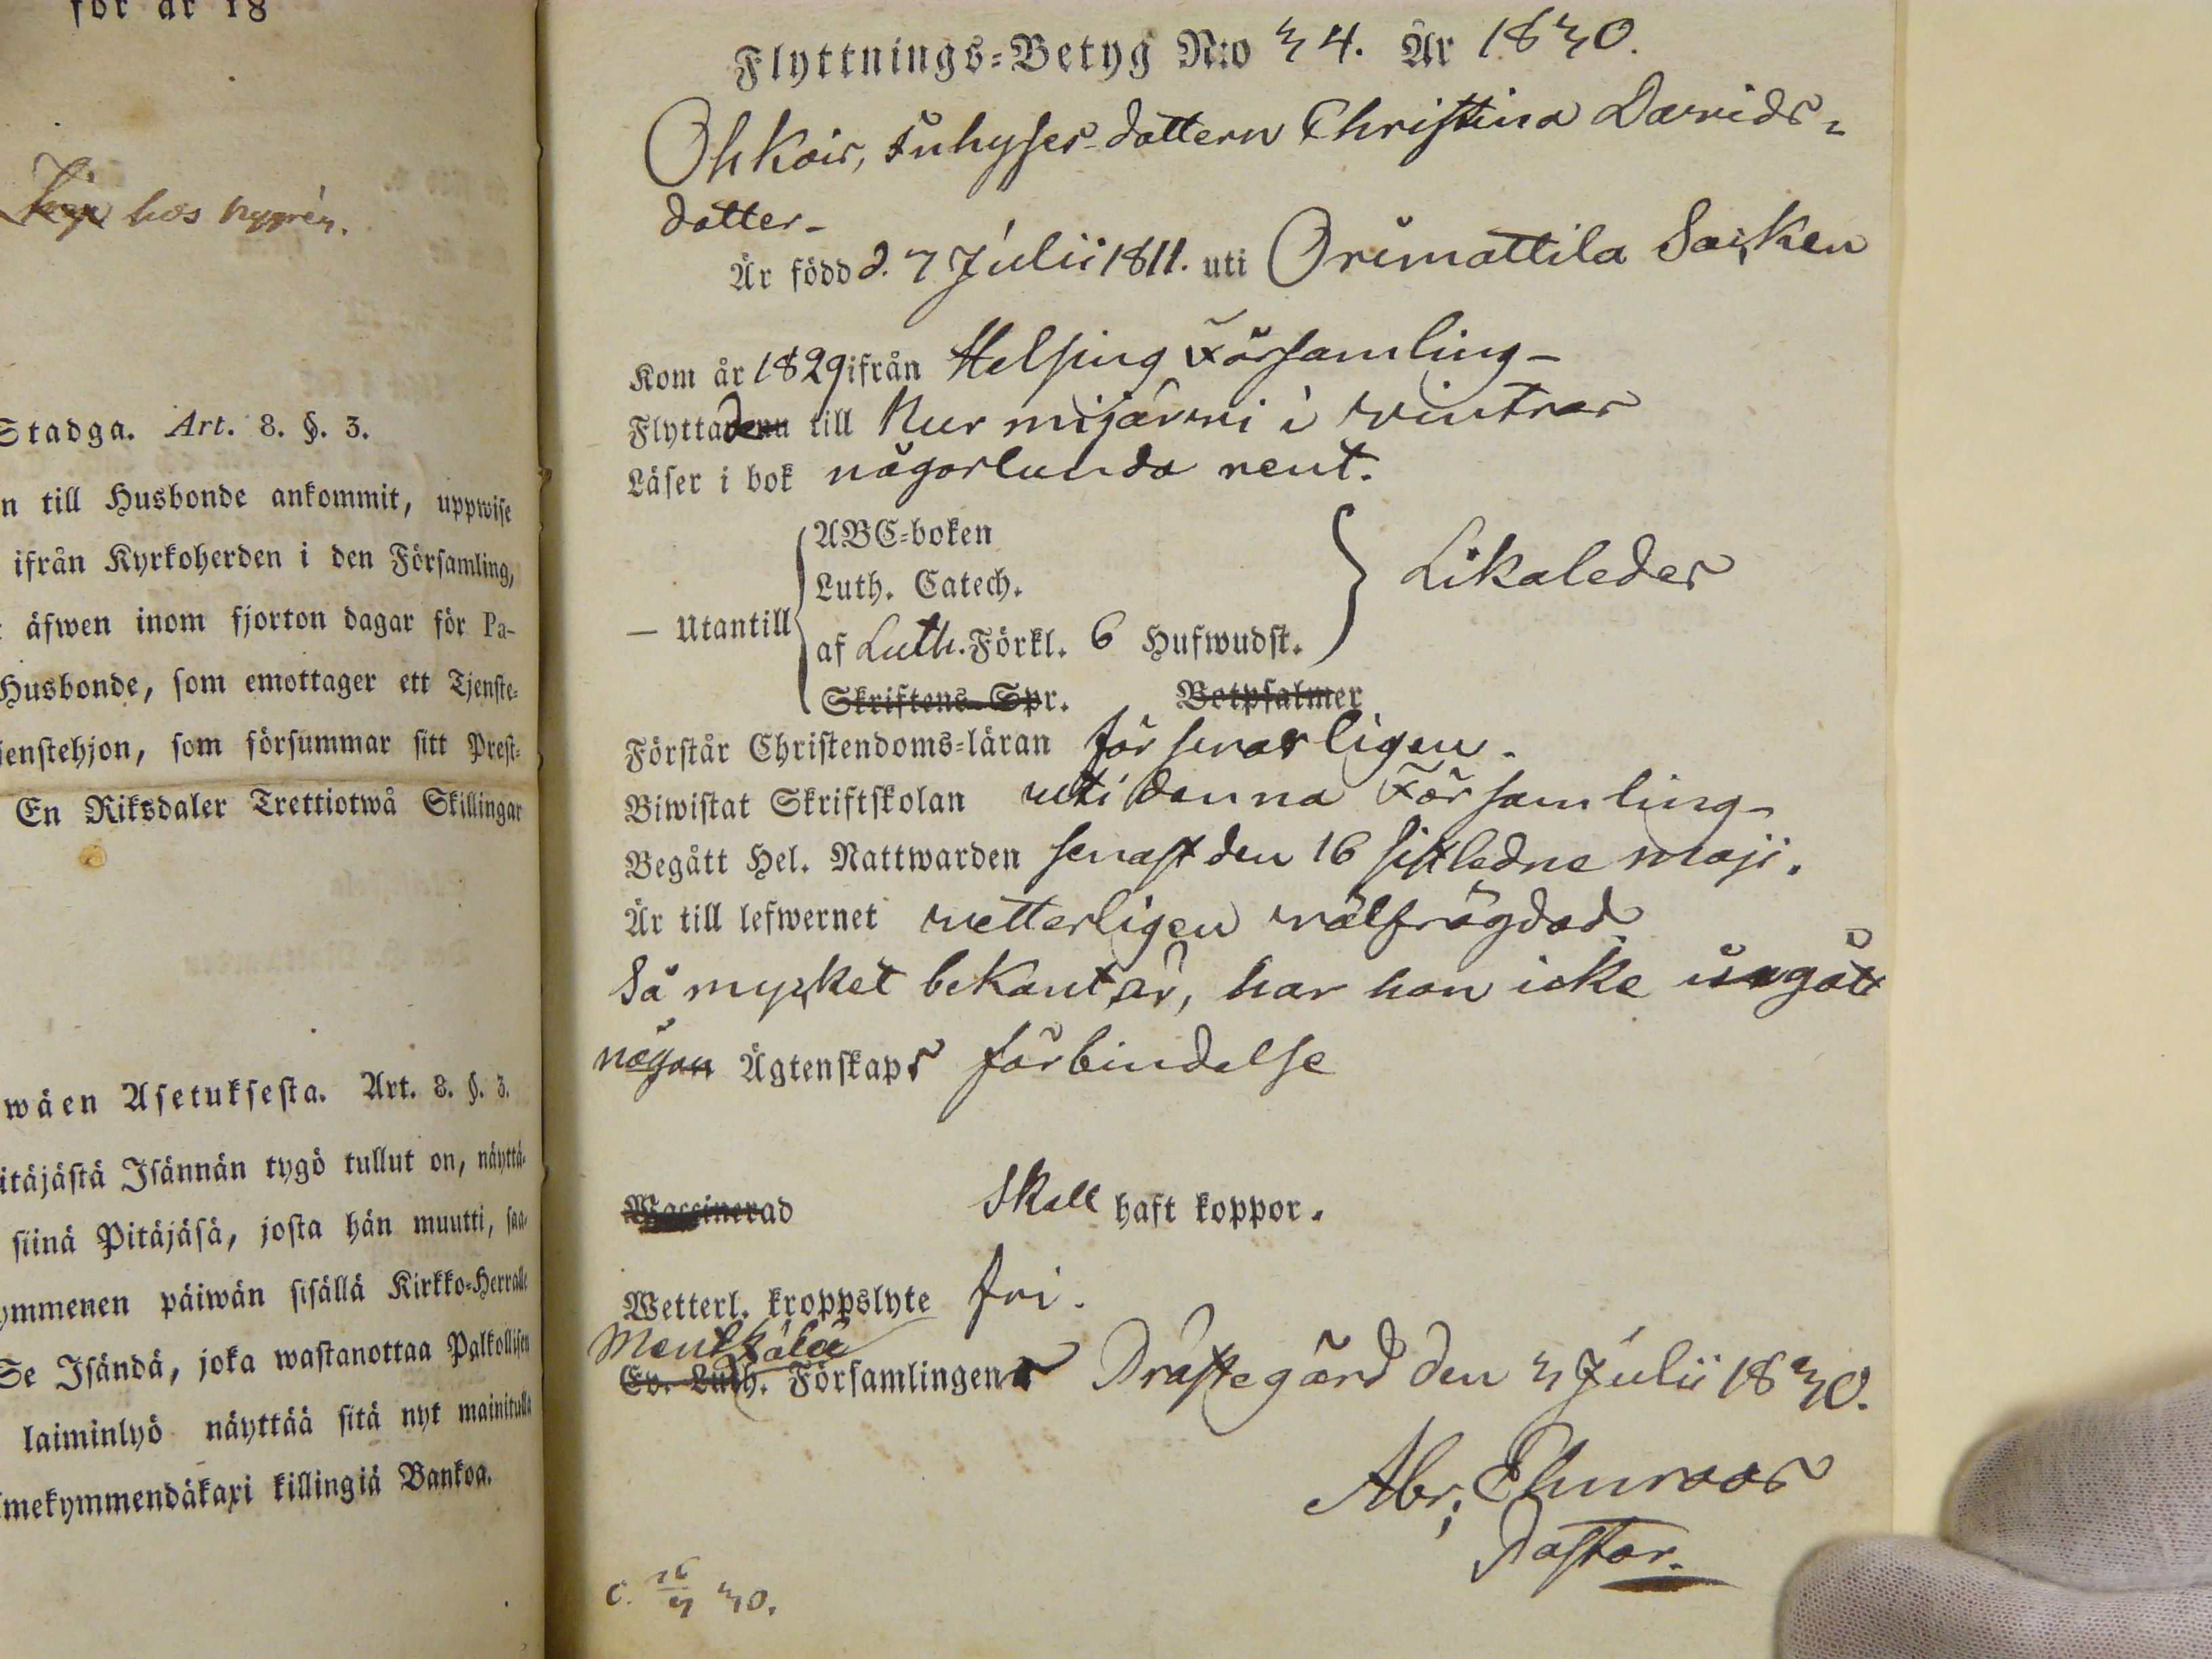 för år 18
hos Nygrén.
Stadga. Art. 8. §. 3.
n till Husbonde ankommit, uppwise
ifrån Kyrkoherden i den Församling,
äfwen inom fjorton dagar för Pa-
Husbonde, som emottager ett Tjenste-
jenstehjon, som försummar sitt Prest-
En Riksdaler Trettiotwå Skillingar
wäen Asetuksesta. Art. 8. §. 3.
itäjästä Isännän tygö tullut on, näyttä-
siinä Pitäjäsä, josta hän muutti, saa-
ymmenen päiwän sisällä Kirkko-Herralle
Se Isändä, joka wastanottaa Palkollisen
laiminlyö näyttää sitä nyt mainitulla
mekymmendäkaxi killingiä Bankoa.
Flyttnings-Betyg N:o 34. År 1830.
Ohkois, Inhyses-dottern Christina Davids-
dotter-
Är född d. 7 Julii 1811. uti Orimattila Socken
Kom år 1829 ifrån Helsing Församling-
Flyttade till Nurmijärvi i vintras
Läser i bok någorlunda rent.
— Utantill
ABC-boken
Luth. Catech.
af Luth. Förkl. 6 Hufwudst.
Skriftens Spr. Botpsalmer
Likaledes
Förstår Christendoms-läran försvarligen.
Biwistat Skriftskolan uti denna Församling-
Begått Hel. Nattwarden senast den 16 sistledne Maji.
Är till lefwernet vetterligen välfrägdad.
Så mycket bekant är, har hon icke ingått
någon Ägtenskaps förbindelse
Waccinerad Skall haft koppor.
Wetterl. kroppslyte fri.
Mentsälä
Ev. Luth. Församlingens Prästegård den 3 Julii 1830.
Abr; Ehnroos
Pastor.
C. 16/7 30.